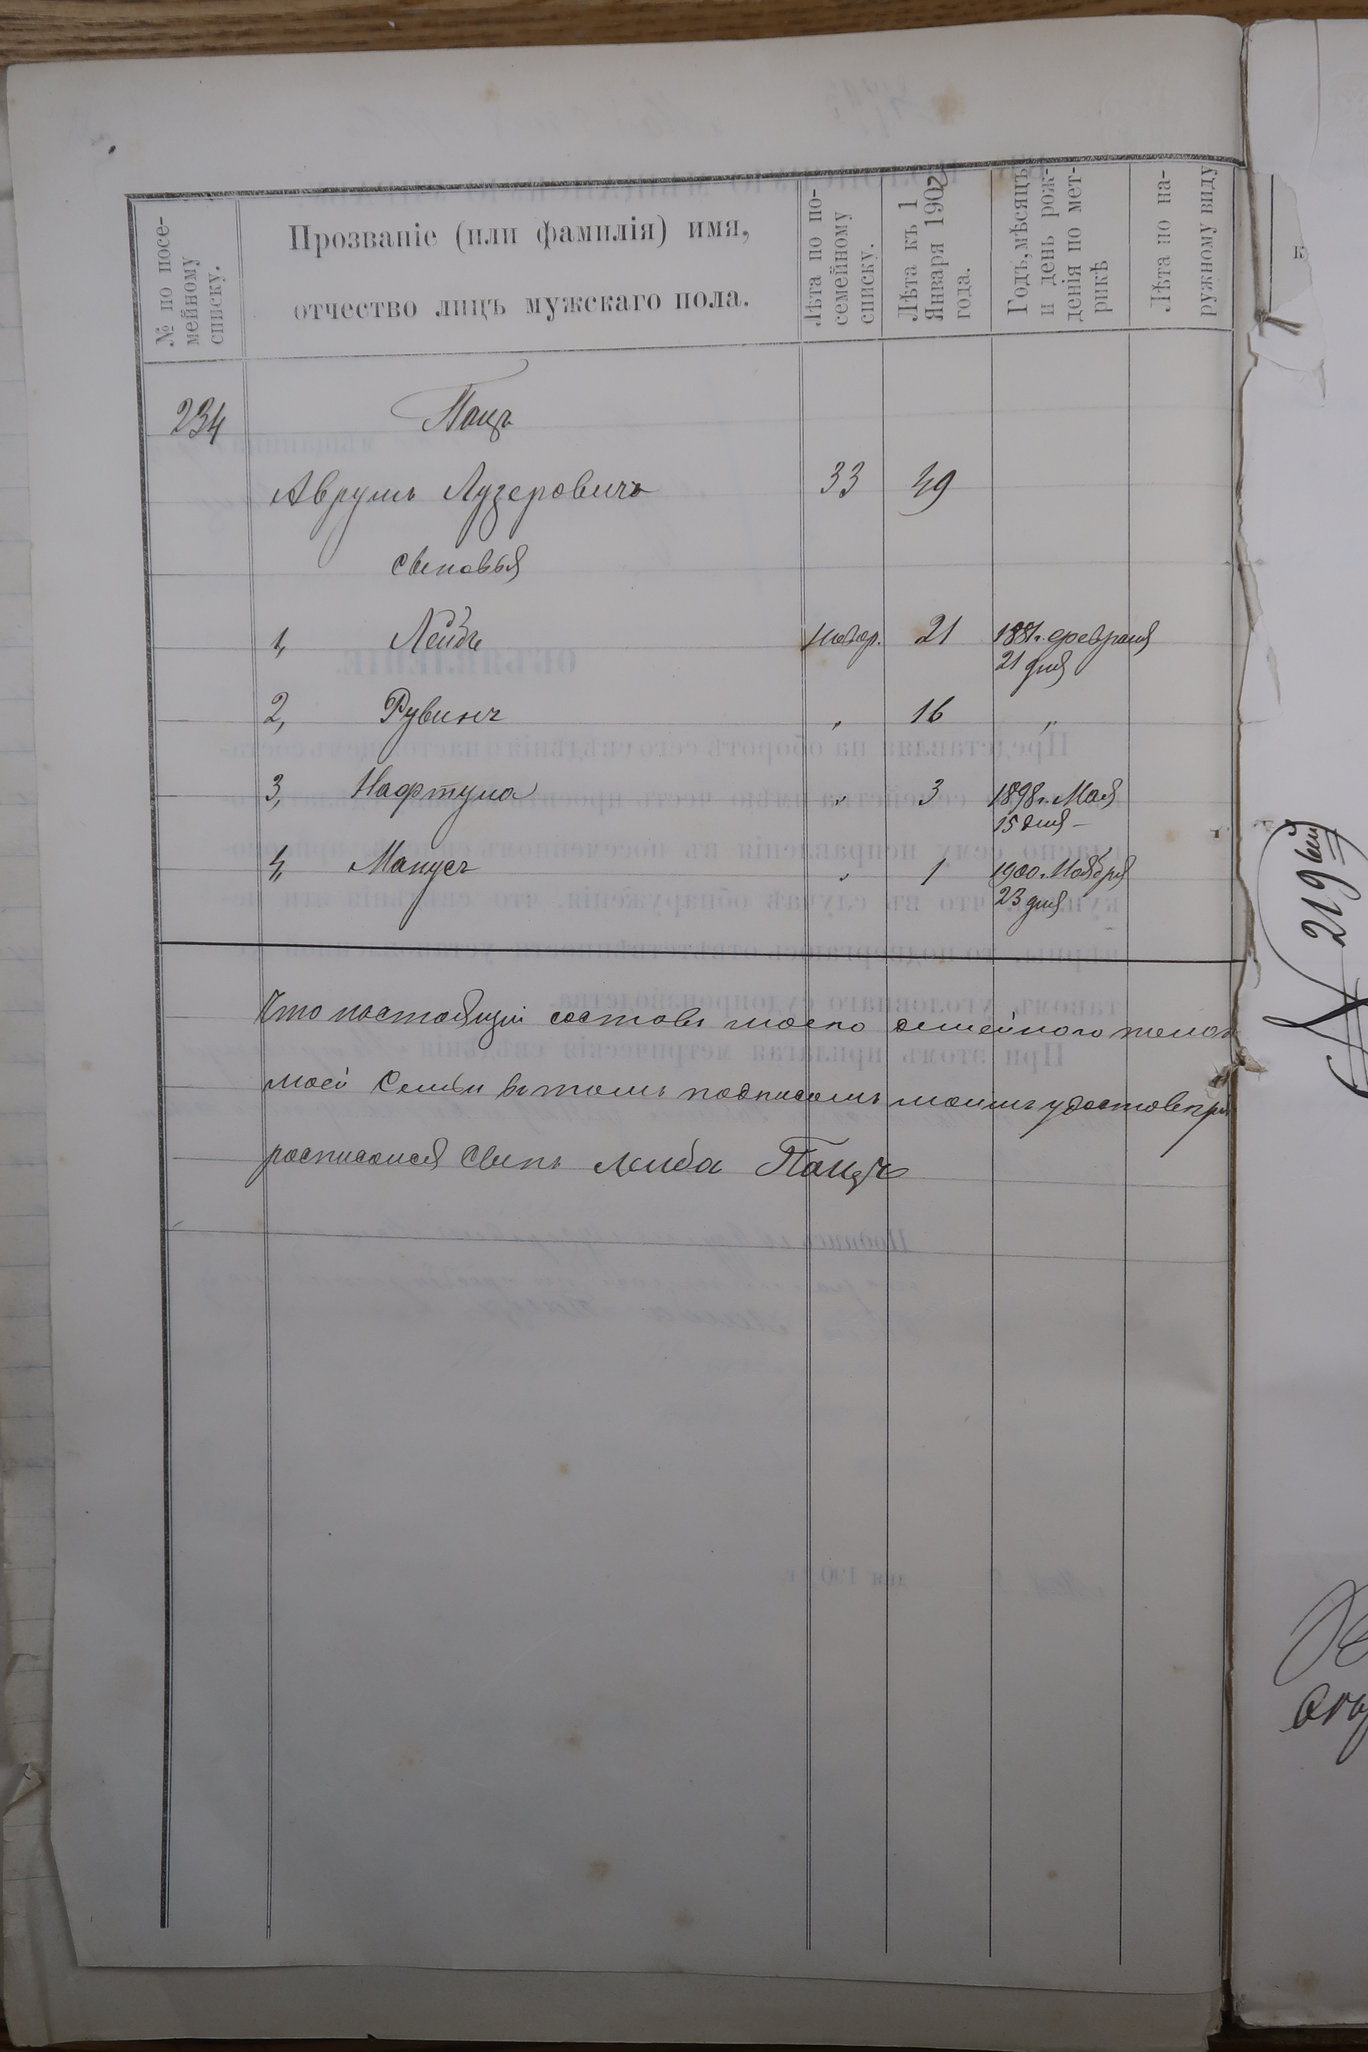 № по посе-
мейному
списку.
Прозваніе (или фамилія) имя,
отчество лицъ мужскаго пола.
Лѣта по по-
семейному
списку.
Лѣта къ 1
Января 1902
года.
Годъ, мѣсяцъ
и день рож-
денія по мет-
рикѣ
Лѣта по на-
ружному виду
234
Пацъ
Аврумъ Лузеровичъ 33 49
сыновья
1, Лейбъ Новор. 21 1881г. февраля
21 дня
2, Рувинъ „ 16 „
3, Нафтула „ 3 1898г. Мая
15 дня
4, Манусъ „ 1 1900г. Ноября
23 дня
Что настоящій составъ моего семейного
моей Семьи в томъ подписомъ моимъ
росписался Сынъ Лейба Пацъ
219